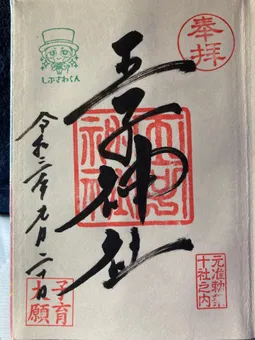 奉拝
王子神社
元准勅祭
十社之内
しぶさわくん
令和二年九月二十日
子育
大願